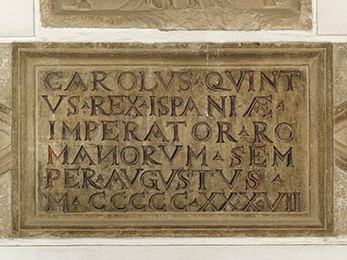 CAROLVS·QVINT
VS·REX·ISPANIÆ·
IMPERATOR·RO
MANORVM·SEM
PER·AVGVSTVS·
M·CCCCC·XXXVII